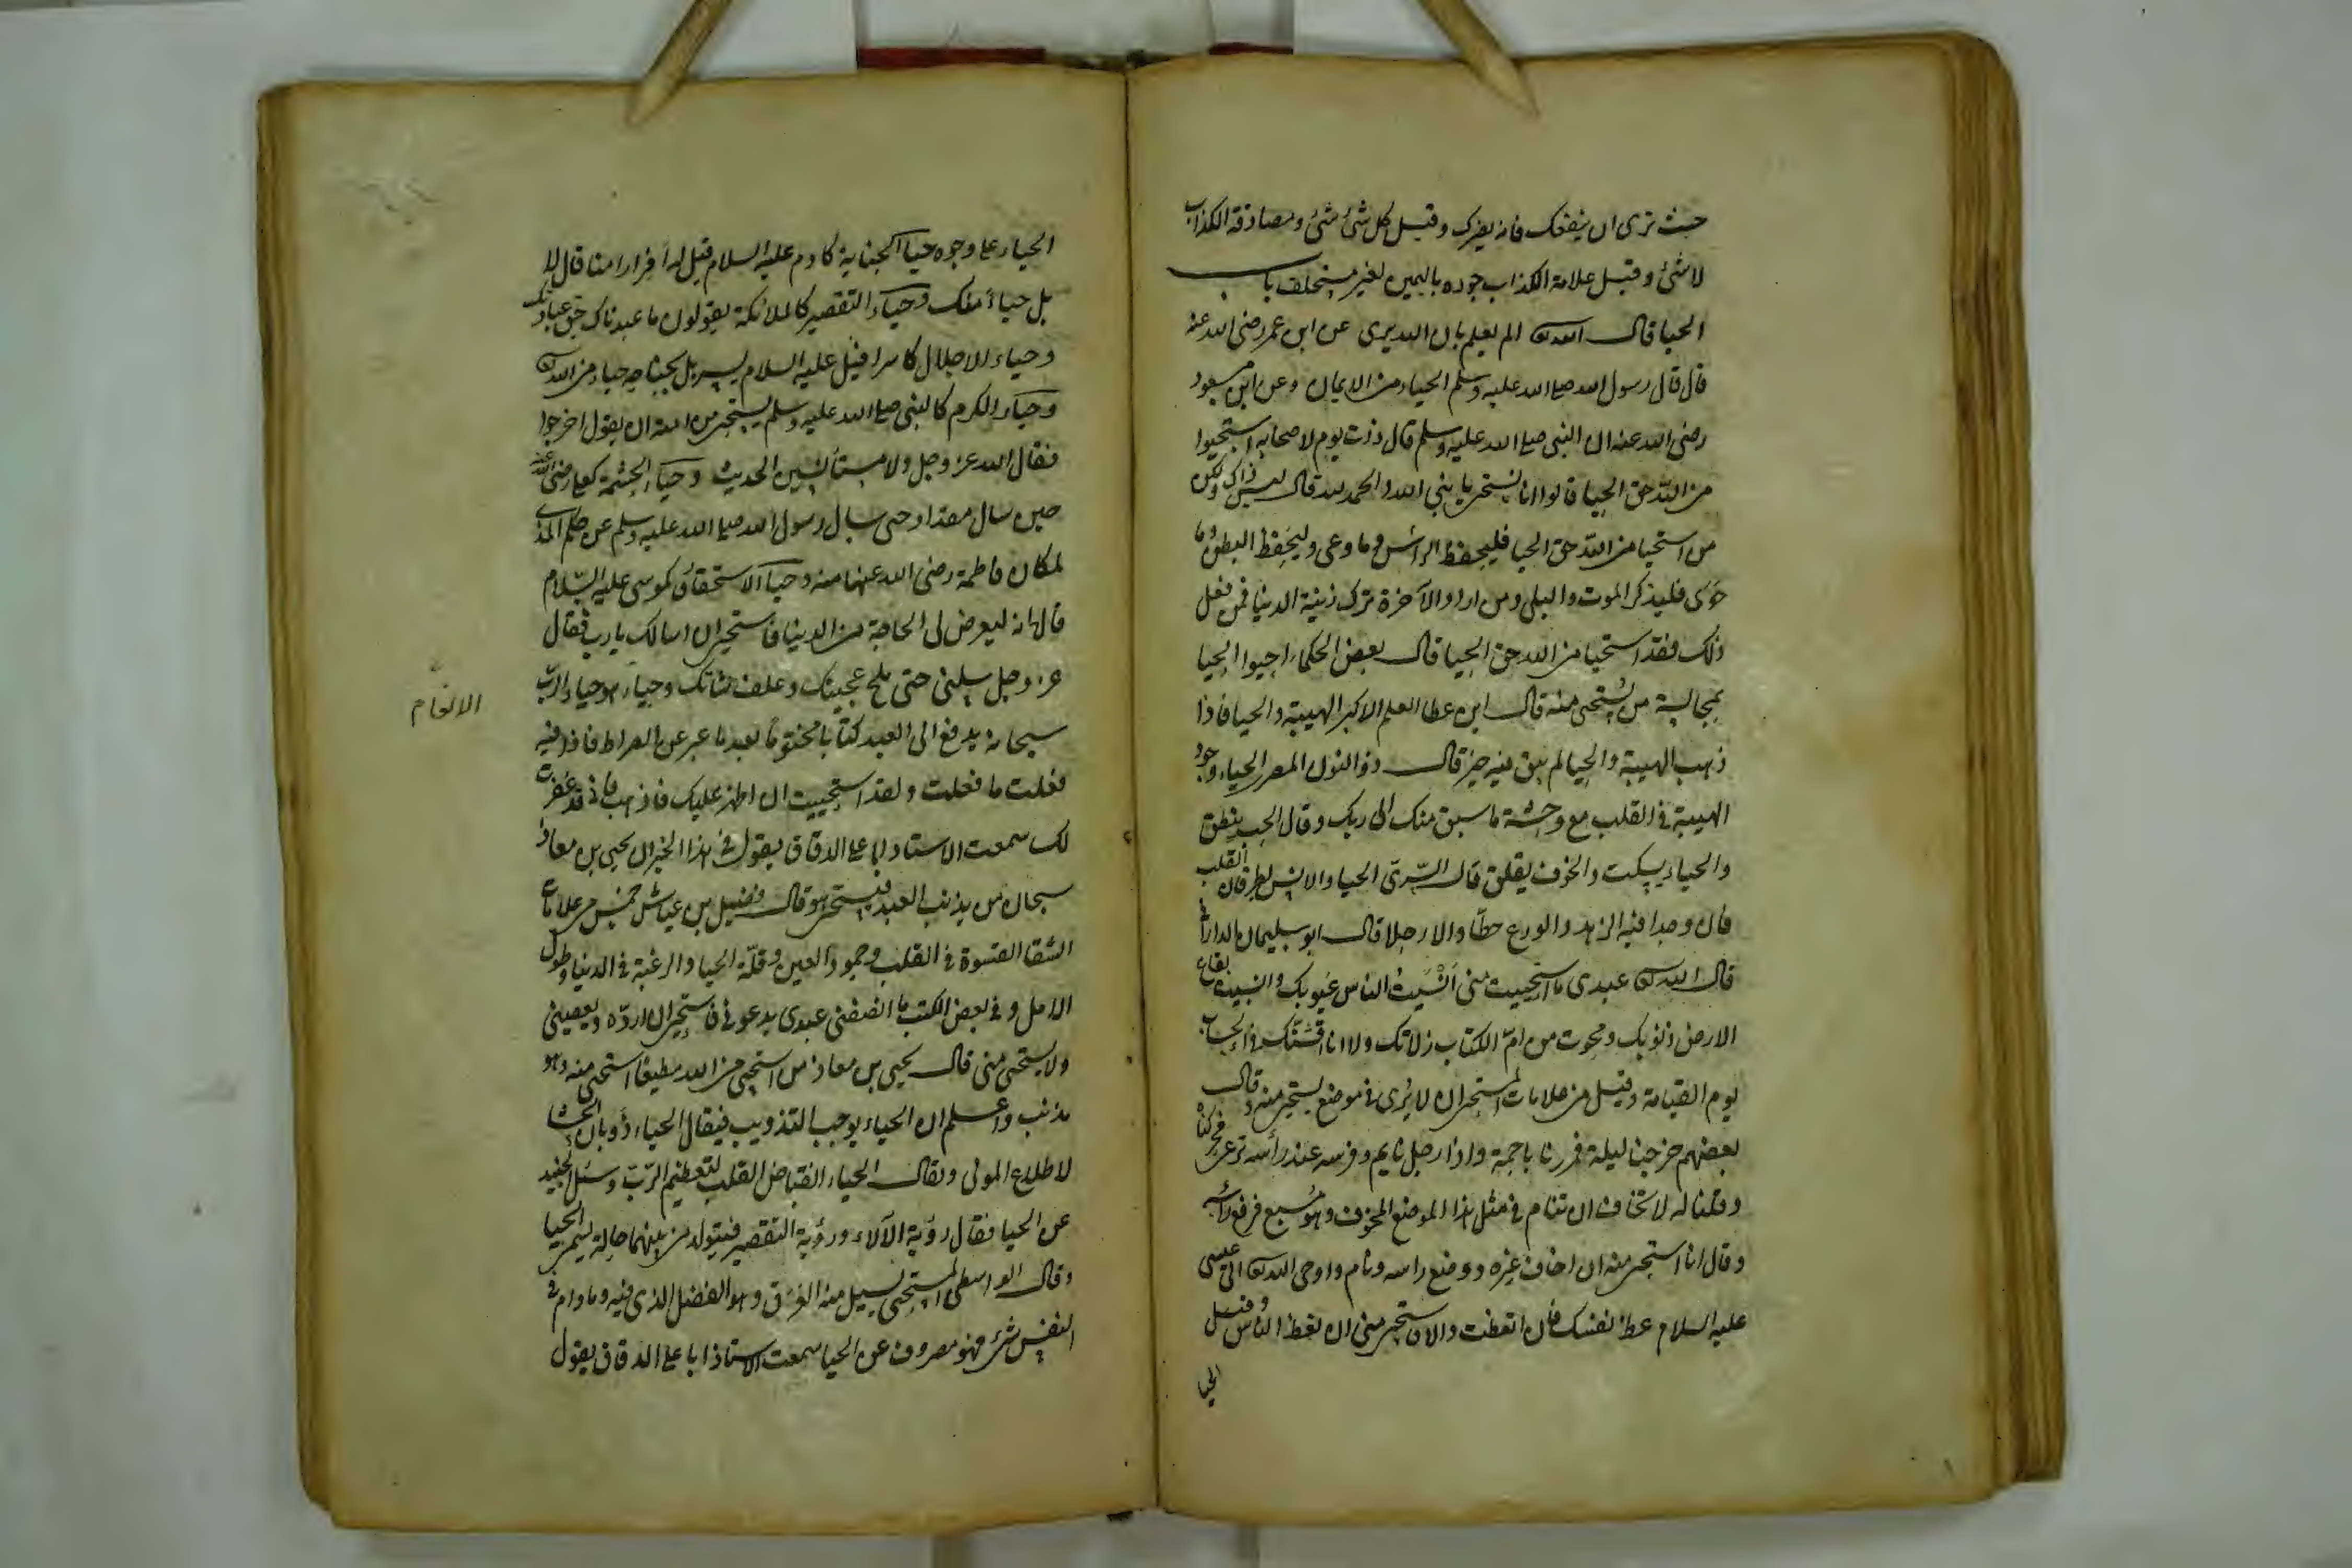 حيث ترى ان ينفعك فانه يضرك وقيل كل شئ شئ ومصادقة الكذاب
لا شئ وقيل علامة الكذاب جوده باليمين لغير مستحلف باب
الحيا قال الله تعالى الم يعلم بان الله يرى عن ابن عمر رضى الله عنه
قال قال رسول الله صلى الله عليه وسلم الحياء من الايمان وعن ابن مسعود
رضى الله عنه ان النبى صلى الله عليه وسلم قال ذات يوم لاصحابه استحيوا
من الله حق الحيا قالوا انا نستحى يا نبى الله والحمد لله قال ليس ذاك ولكن
من استحيا من الله حق الحيا فليحفظ الراس وما وعى وليحفظ البطن وما
حوى فليذكر الموت والبلى ومن اراد الآخرة ترك زينة الدنيا فمن فعل
ذلك فقد استحيا من الله حق الحيا قال بعض الحكماء احيوا الحيا
بمجالسة من يُستحى منه قال ابن عطا العلم الاكبر الهيبة والحيا فاذا
ذهب الهيبة والحيا لم يبق فيه خير قال ذو النون المصرى الحياء وجود
الهيبة فى القلب مع وحشة ما سبق منك الى ربك وقال الحب ينطق
والحياء يسكت والخوف يقلق قال السّرى الحيا والانس يطرقان القلب
فان وجدا فيه الزهد والورع حطّا والا رحلا قال ابو سليمان الدارانى
قال الله تعالى عبدى ما استحييت منى اَنْسَيتُ الناس عيوبك وانسيت بقاع
الارض ذنوبك ومحوت من امّ الكتاب زلاتك ولا اناقشك فى الحساب
يوم القيامة وقيل من علامات المستحى ان لا يُرى فى موضع يستحى منه وقال
بعضهم خرجنا ليلة فمررنا باجمة واذا رجل نايم وفرسه عند رأسه ترعى فحركناه
وقلنا له لا تخاف ان تنام فى مثل هذا الموضع المخوف وهو مُسبع فرفع رأسه
وقال انا استحى منه ان اخاف غيره ووضع راسه ونام واوحى الله تعالى الى عيسى
عليه السلام عظ نفسك فان اتعظت والا فاستحى منى ان تعظ الناس وقيل
الحيا
الحياء على وجوه حياء الجناية كادم عليه السلام قيل له أفرارا منا قال لا
بل حياءً منك وحياء التقصير كالملائكة يقولون ما عبدناك حق عبادتك
وحياء الاجلال كاسرافيل عليه السلام يسربل بجناحه حياء من الله تعالى
وحياء الكرم كالنبى صلى الله عليه وسلم يستحى من امته ان يقول اخرجوا
فقال الله عز وجل ولا مستأنسين لحديث وحياء الحشمة كعلى رضى الله عنه
حين سال مقداد حتى سال رسول الله صلى الله عليه وسلم عن حكم المذى
لمكان فاطمة رضى الله عنها منه وحياء الاستحقار كموسى عليه السّلام
قال انه ليعرض لى الحاجة من الدنيا فاستحى ان اسالك يا رب فقال
عز وجل سلنى حتى ملح عجينك وعلف شاتك وحياء هو حياء الربّ
الانعام
سبحانه يدفع الى العبد كتابا مختوما بعد ما عبر عن الصراط فاذا فيه
فعلت ما فعلت ولقد استحييت ان اظهر عليك فاذهب فانى قد غفرت
لك سمعت الاستاد ابا على الدقاق يقول فى هذا الخبر ان يحيى بن معاذ
سبحان من يذنب العبد فيستحى هو قال فضيل بن عياش خمس من علامات
الشقا القسوة فى القلب وجمود العين وقلّة الحيا والرغبة فى الدنيا وطول
الامل وفى بعض الكتب ما انصفنى عبدى يدعونى فاستحى ان اردّه ويعصينى
ولا يستحى منى قال يحيى بن معاذ من استحيى من الله مطيعًا استحى منه وهو
مذنب واعلم ان الحياء يوجب التذويب فيقال الحياء ذوبان الحشا
لاطلاع المولى ويقال الحياء انقباض القلب لتعظيم الرّبّ وسئل الجنيد
عن الحيا فقال رؤية الآلاء ورؤية التقصير فيتولد من بينهما حالة يسمى الحيا
وقال الواسطى المستحى يسيل منه العَرَق وهو الفضل الذى فيه وما دام فى
النفس شئ فهو مصروف عن الحيا سمعت الاستاذ ابا على الدقاق يقول